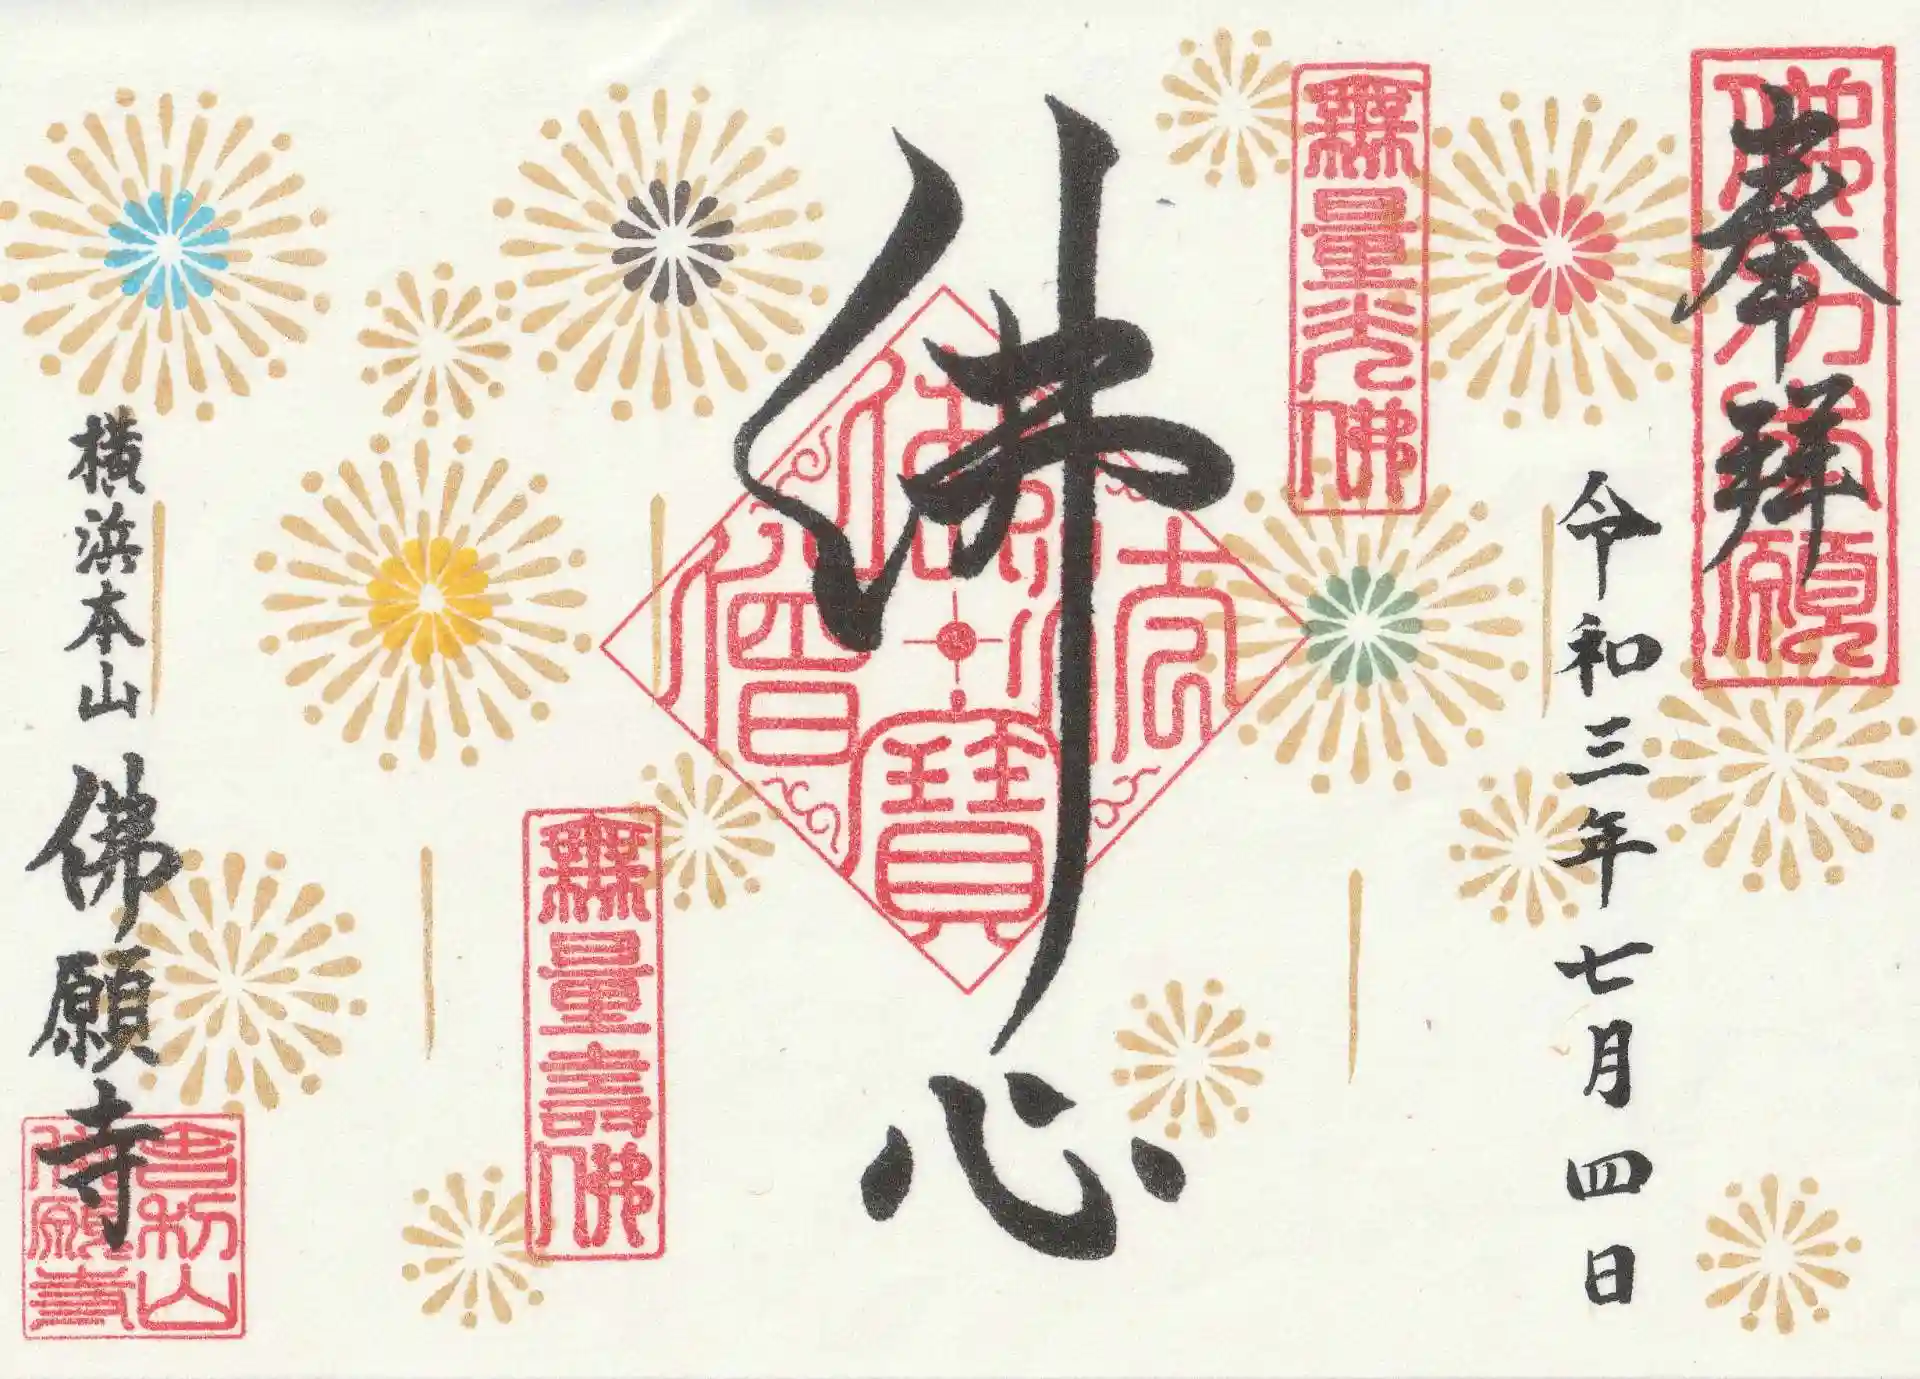 奉拝
令和三年七月四日
無量光佛
佛心
佛法僧寶
無量壽佛
横浜本山 佛願寺
舎利山
佛願寺